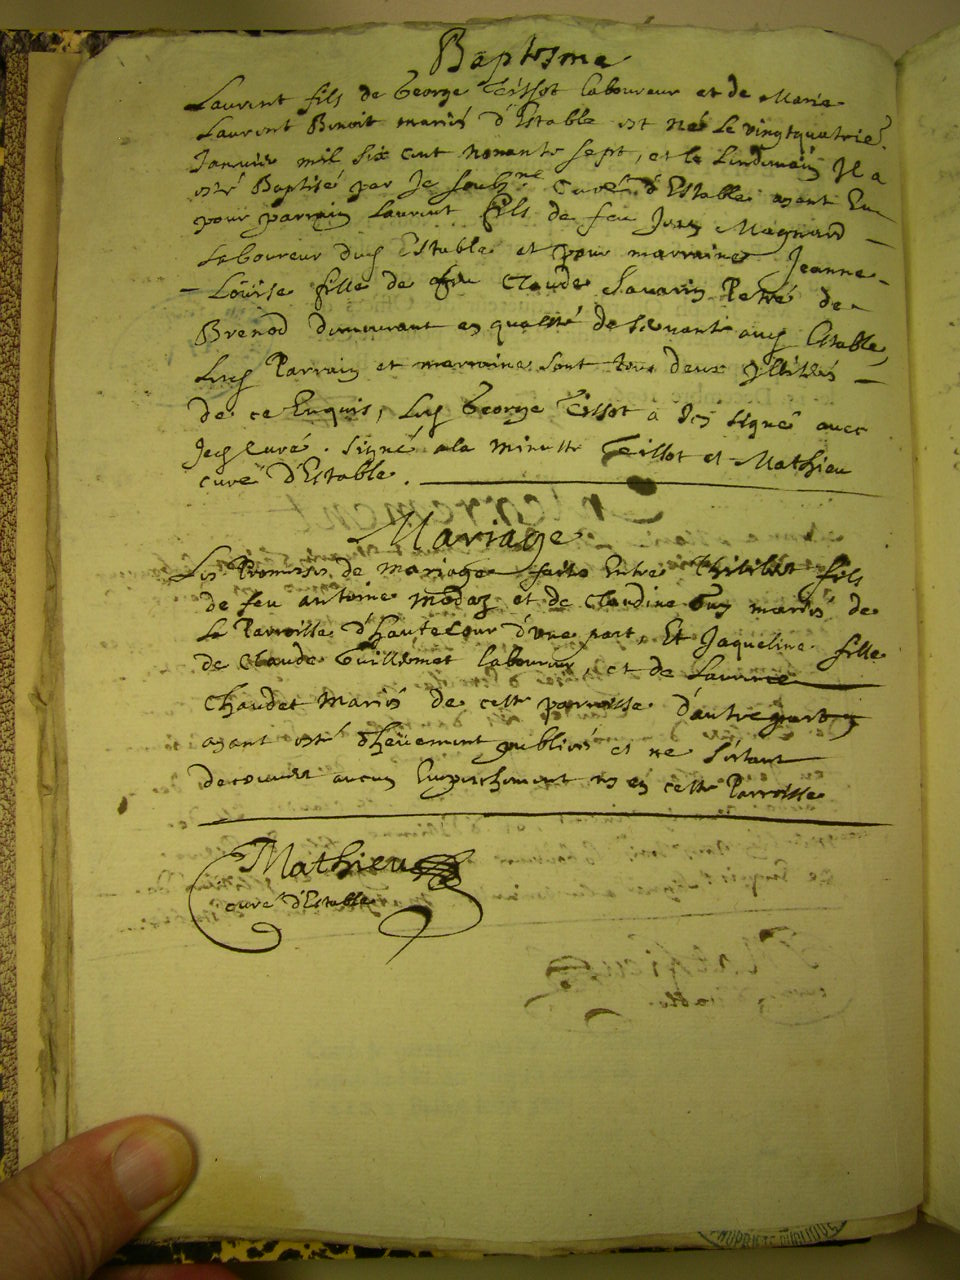 Baptesme
Laurent fils de George Teissot laboureur et de Marie
Laurent Benoit mariés d'Estable est né le vingtquatrie.
Janvier mil six cent nonante sept, et le lindemain Il a
esté Baptisé par Je soubz.né Curé d'Estable ayant Eu
pour parrain Laurent fils de feu Jean Magnard
Laboureur dud Estable et pour marraine Jeanne
Loüise fille de feu Claude Savarin Petré de
Brenod demeurant en qualité de servante aud Estable,
Lesd Parrain et marraine sont tous deux illitérés
de ce Enquis, Led George Teissot a Icy signé avec
Jed Curé. Signé a la minutte Teissot et Mathieu
curé d'Estable.
Mariage
Les Promesses de mariage faite Entre Philibert fils
de feu antoine et de Claudine Guy mariés de
La Parroisse d'hautecour d'une part, Et Jaqueline fille
de Claude Guillemot laboureur, et de Laurence
Chaudet Mariés de cette parroisse d'autre part
ayant esté publiées et ne s'estant
decouvert aucun Empeschement en cette Parroisse
Mathieu
curé d'Estable